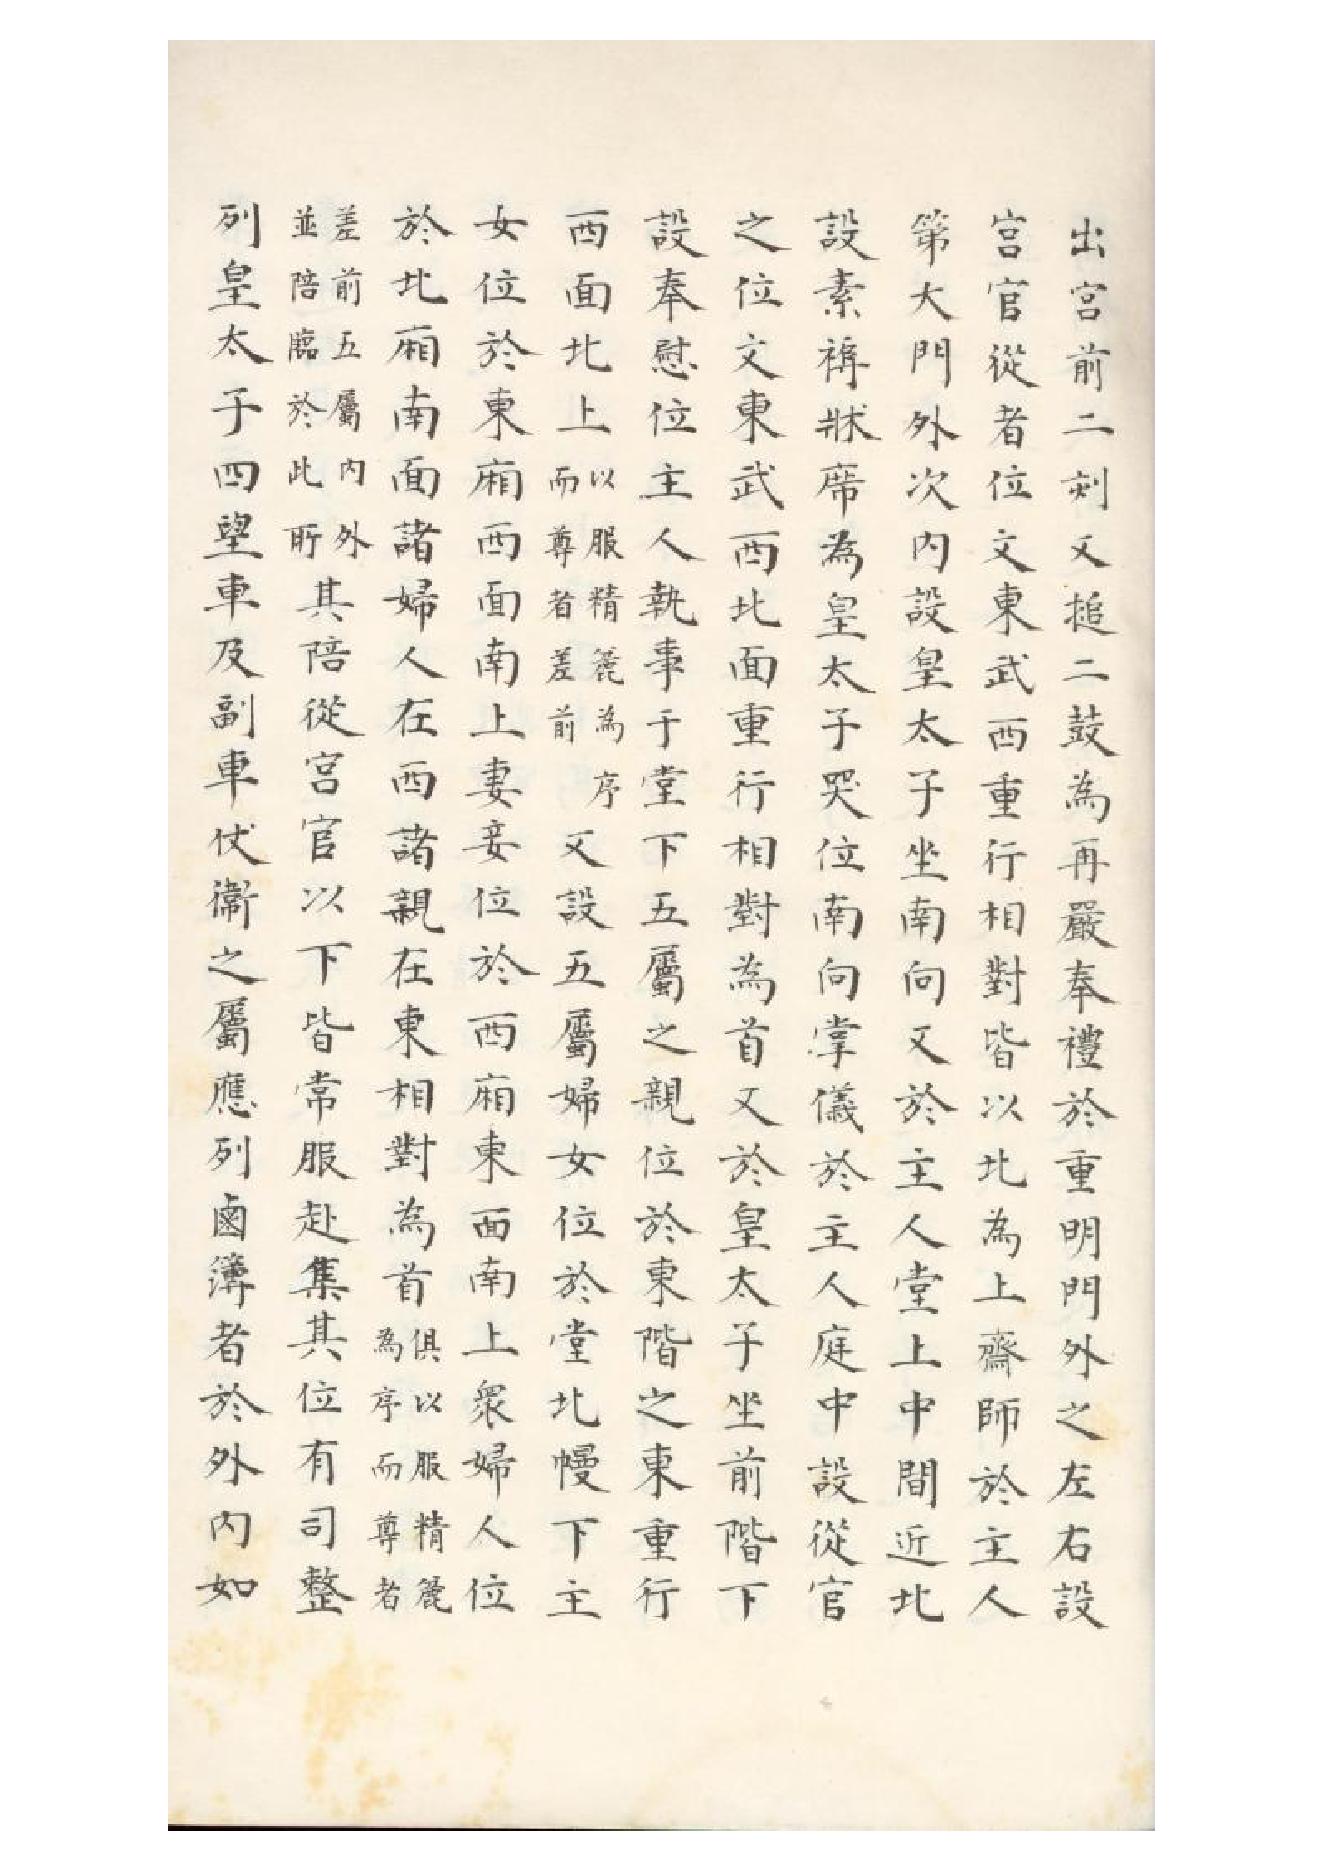 出宮前二刻又搥二鼓為再嚴奉禮於重明門外之左右設
宮官從者位文東武西重行相對皆以北為上齋師於主人
第大門外次內設皇太子坐南向又於主人堂上中間近北
設素裯牀席為皇太子哭位南向掌儀於主人庭中設從官
之位文東武西北面重行相對為首又於皇太子坐前階下
設奉慰位主人執事于堂下五屬之親位於東階之東重行
西面北上以服精麄為序而尊者差前又設五屬婦女位於堂北幔下主
女位於東廂西面南上妻妾位於西廂東面南上眾婦人位
於北廂南面諸婦人在西諸親在東相對為首俱以服精麄為序而尊者
差前五屬內外並陪臨於此所其陪從宮官以下皆常服赴集其位有司整
列皇太子四望車及副車仗衞之屬應列鹵簿者於外內如